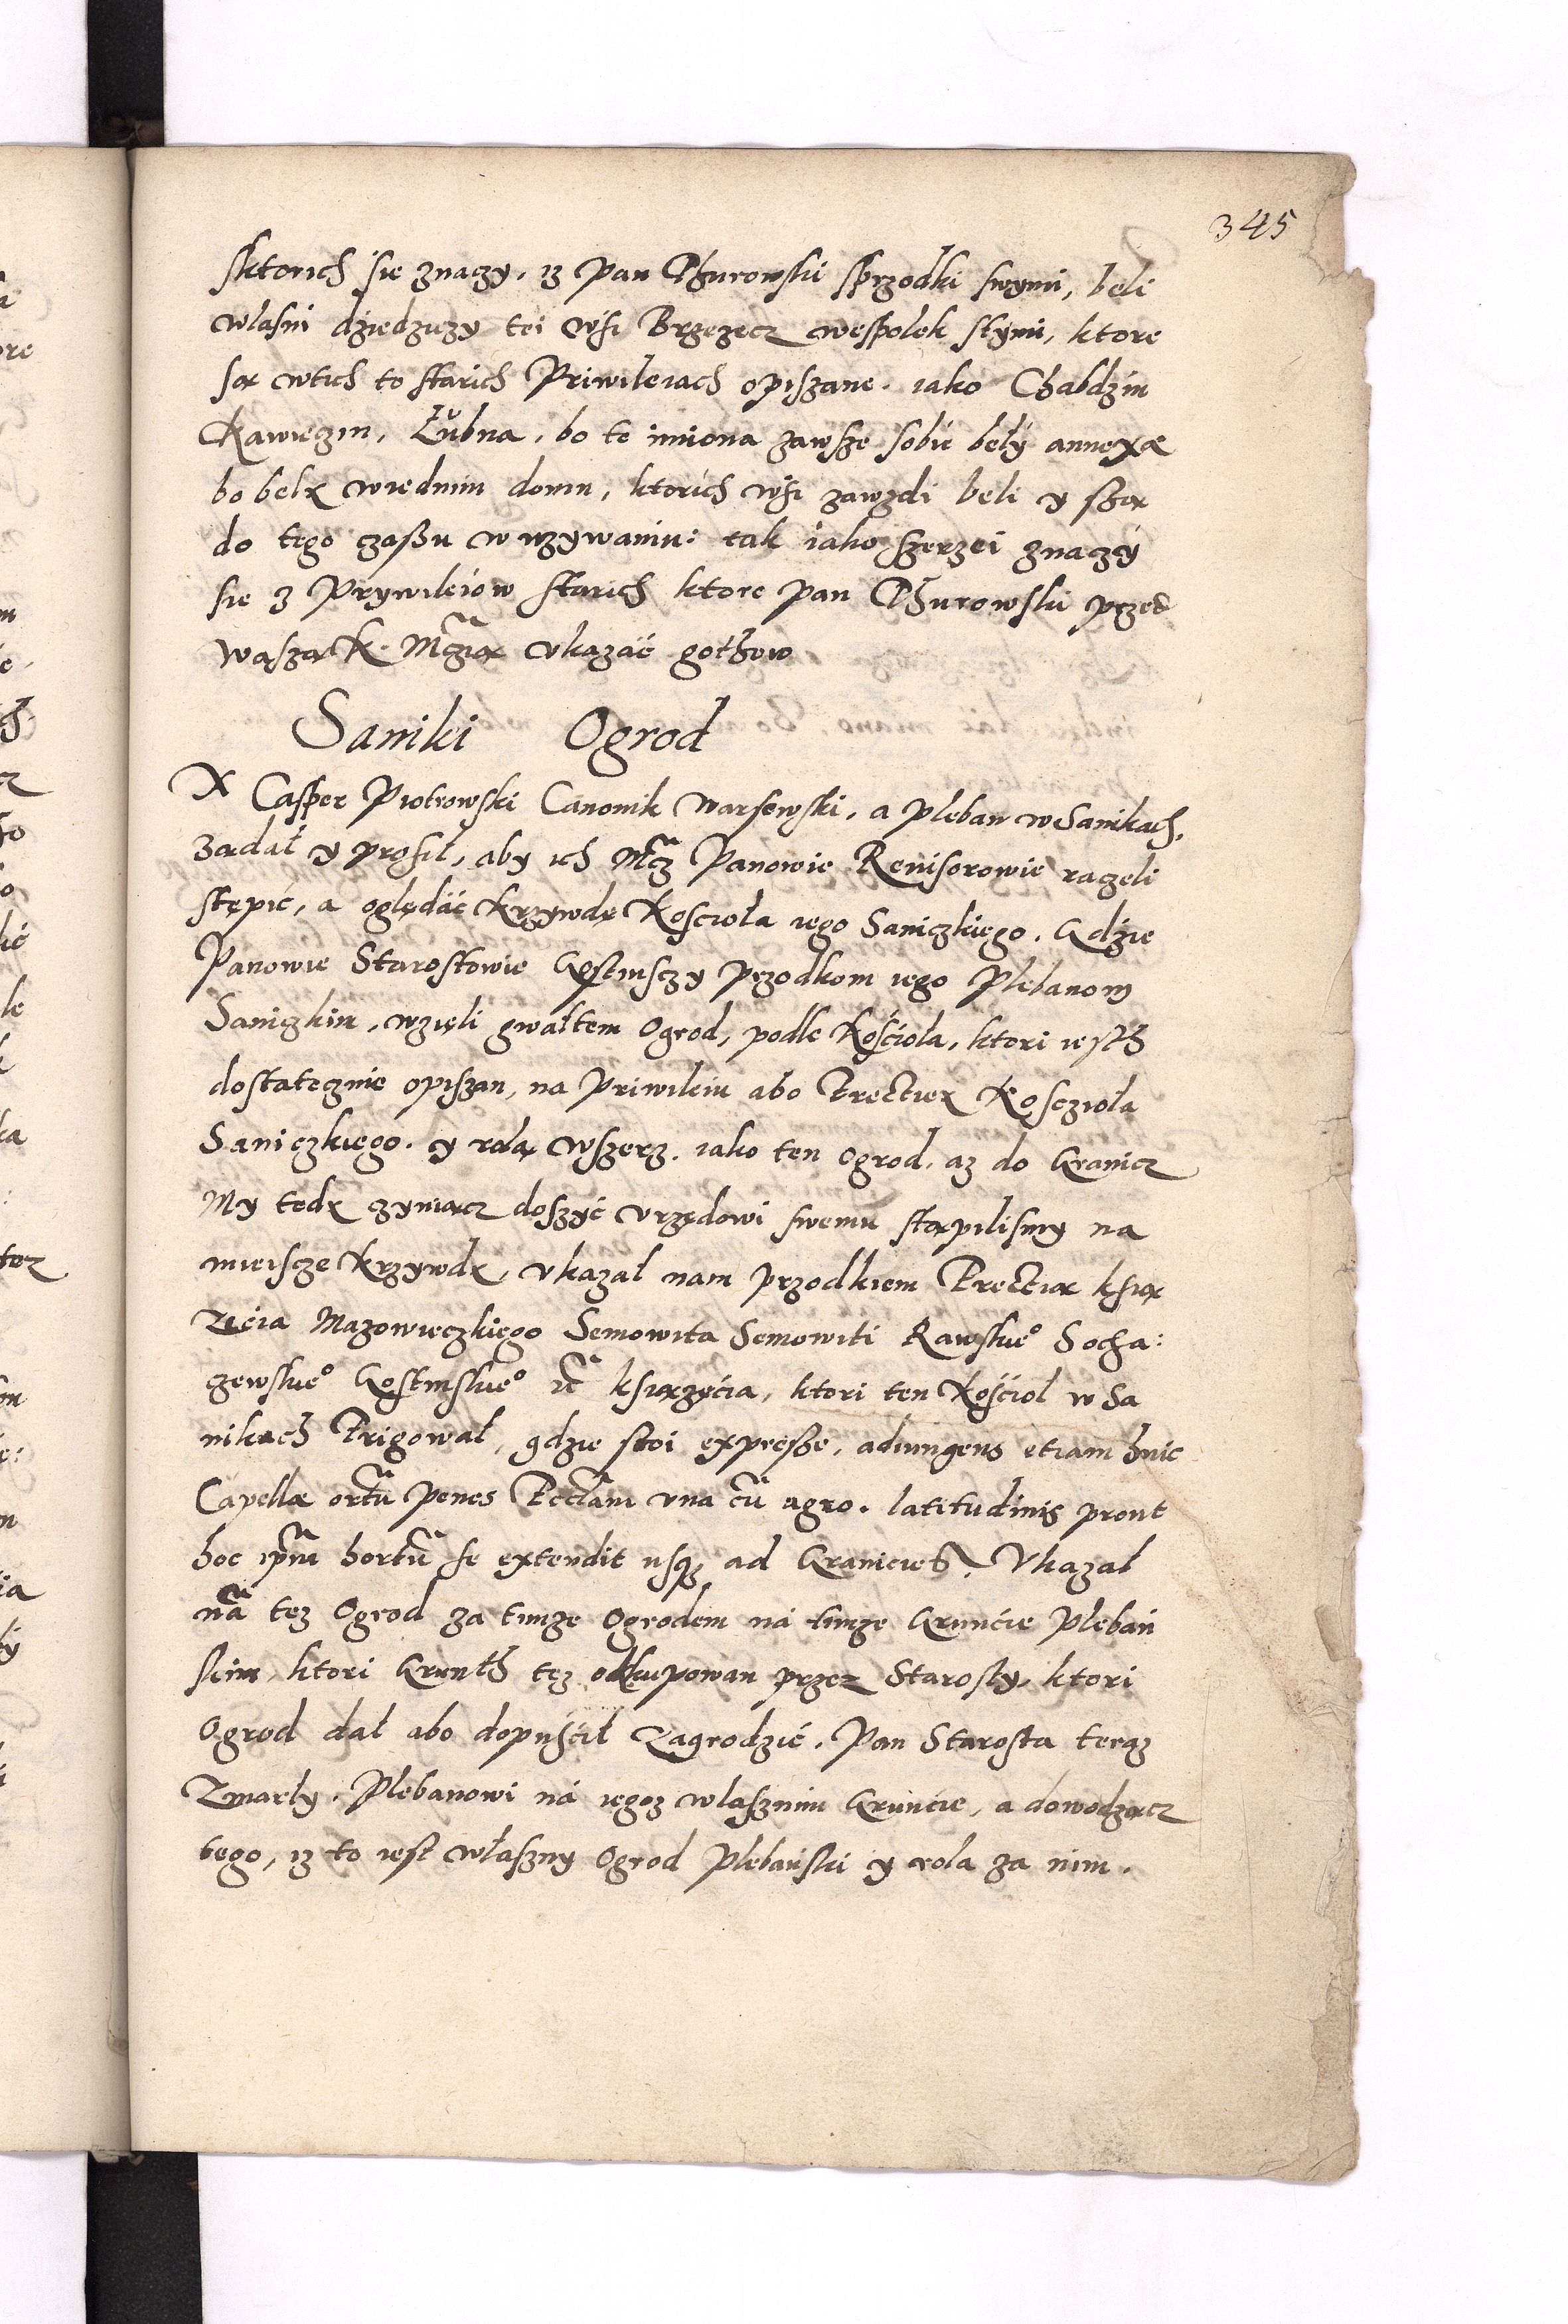 345
sktorich sie znaczy, iz Pan Thurowski sprzodki swymi, beli
wlasni dziedziczy tei wsi Brzezecz wespolek stymi, ktore
są wtich to starich Priwileiach opiszane. iako Chabdzin
Kawieczin, Łubna, bo te imiona zawsze sobie beły annexæ
bo belẏ wiednim domu, ktorich wsi zawzdi beli y są
do tego czaßu w uzywaniu: tak iako szerzei znaczy
sie z Prywileiow starich ktore pan Thurowski przed
waszą K. Mczią vkazać gothow
Saniki Ogrod
X Casper Piotrowski Canonik Warsewski, a Pleban w Sanikach,
Ządał y prosił, aby ich Mcz Panowie Reuisorowie raczeli
stępić, a oględać krzywdę Kosciola iego Saniczkiego. Gdzie
Panowie Starostowie Gostinsczy przodkom iego Plebanom
Saniczkim, wzięli gwałtem Ogrod, podle Kośćiola, ktori iesth
dostatecznie opiszan, na Priwileiu abo Erectiey Kosczioła
Saniczkiego. y rolą wszerz. iako ten Ogrod, az do Granicz
My tedy czyniącz doszyć vrzędowi swemu stąpilismy na
mieiscze krzywdy, vkazal nam przodkiem Erectią ksią
zęcia Mazowieczkiego Semowita Semowiti Rawskie° Socha:
czewskie° Gostinskie° ec ksiązęćia, ktori ten Kośćiol w Sa
nikach Erigował, gdzie stoi expreße, adiungens etiam huic
Capellæ ortũ penes Ecclam vna cũ agro. latitudinis prout
hoc ipm̃ hortũ se extendit usq; ad Granicies. Vkazal
nã tez Ogrod za timze Ogrodem ná timze Grunćie Plebań
skim, ktori Grunth tez odkupowan przez Starosty, ktori
Ogrod dał abo dopuśćił Zagrodzić. Pan Starosta teraz
Zmarly. Plebanowi ná iegoz wlasznim Grunćie, a dowodzącz
tego, iz to iest właszny Ogrod Plebański y rola za nim.